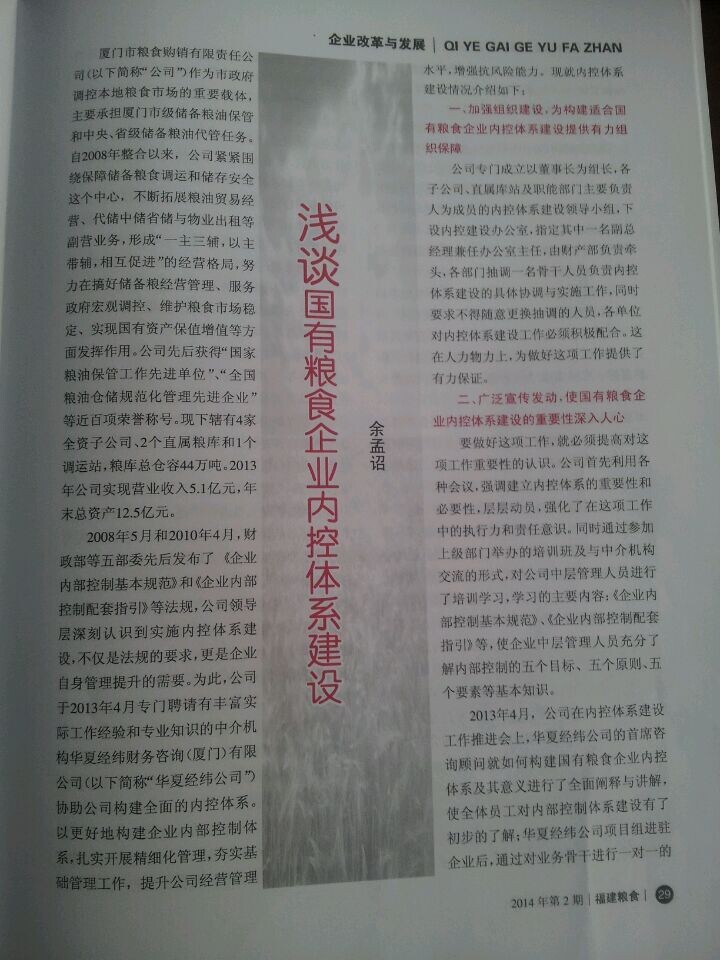 企业改革与发展 | QI YE GAI GE YU FA ZHAN
厦门市粮食购销有限责任公
司(以下简称“公司”)作为市政府
调控本地粮食市场的重要载体,
主要承担厦门市级储备粮油保管
和中央、省级储备粮油代管任务。
自2008年整合以来，公司紧紧围
绕保障储备粮食调运和储存安全
这个中心，不断拓展粮油贸易经
营、代储中储省储与物业出租等
副营业务，形成“一主三辅，以主
带辅，相互促进”的经营格局，努
力在搞好储备粮经营管理、服务
政府宏观调控、维护粮食市场稳
定、实现国有资产保值增值等方
面发挥作用。公司先后获得“国家
粮油保管工作先进单位”、“全国
粮油仓储规范化管理先进企业”
等近百项荣誉称号。现下辖有4家
全资子公司、2个直属粮库和1个
调运站，粮库总仓容44万吨。2013
年公司实现营业收入5.1亿元，年
末总资产12.5亿元。
2008年5月和2010年4月，财
政部等五部委先后发布了《企业
内部控制基本规范》和《企业内部
控制配套指引》等法规，公司领导
层深刻认识到实施内控体系建
设，不仅是法规的要求，更是企业
自身管理提升的需要。为此，公司
于2013年4月专门聘请有丰富实
际工作经验和专业知识的中介机
构华夏经纬财务咨询(厦门)有限
公司(以下简称“华夏经纬公司”)
协助公司构建全面的内控体系。
以更好地构建企业内部控制体
系，扎实开展精细化管理，夯实基
础管理工作，提升公司经营管理
浅谈国有粮食企业内控体系建设
余孟诏
水平，增强抗风险能力。现就内控体系
建设情况介绍如下：
一、加强组织建设，为构建适合国
有粮食企业内控体系建设提供有力组
织保障
公司专门成立以董事长为组长，各
子公司、直属库站及职能部门主要负责
人为成员的内控体系建设领导小组，下
设内控建设办公室，指定其中一名副总
经理兼任办公室主任，由财产部负责牵
头，各部门抽调一名骨干人员负责内控
体系建设的具体协调与实施工作，同时
要求不得随意更换抽调的人员，各单位
对内控体系建设工作必须积极配合。这
在人力物力上，为做好这项工作提供了
有力保证。
二、广泛宣传发动，使国有粮食企
业内控体系建设的重要性深入人心
要做好这项工作，就必须提高对这
项工作重要性的认识。公司首先利用各
种会议，强调建立内控体系的重要性和
必要性，层层动员，强化了在这项工作
中的执行力和责任意识。同时通过参加
上级部门举办的培训班及与中介机构
交流的形式，对公司中层管理人员进行
了培训学习，学习的主要内容：《企业内
部控制基本规范》、《企业内部控制配套
指引》等，使企业中层管理人员充分了
解内部控制的五个目标、五个原则、五
个要素等基本知识。
2013年4月，公司在内控体系建设
工作推进会上，华夏经纬公司的首席咨
询顾问就如何构建国有粮食企业内控
体系及其意义进行了全面阐释与讲解，
使全体员工对内部控制体系建设有了
初步的了解；华夏经纬公司项目组进驻
企业后，通过对业务骨干进行一对一的
2014年第2期 | 福建粮食 | 29